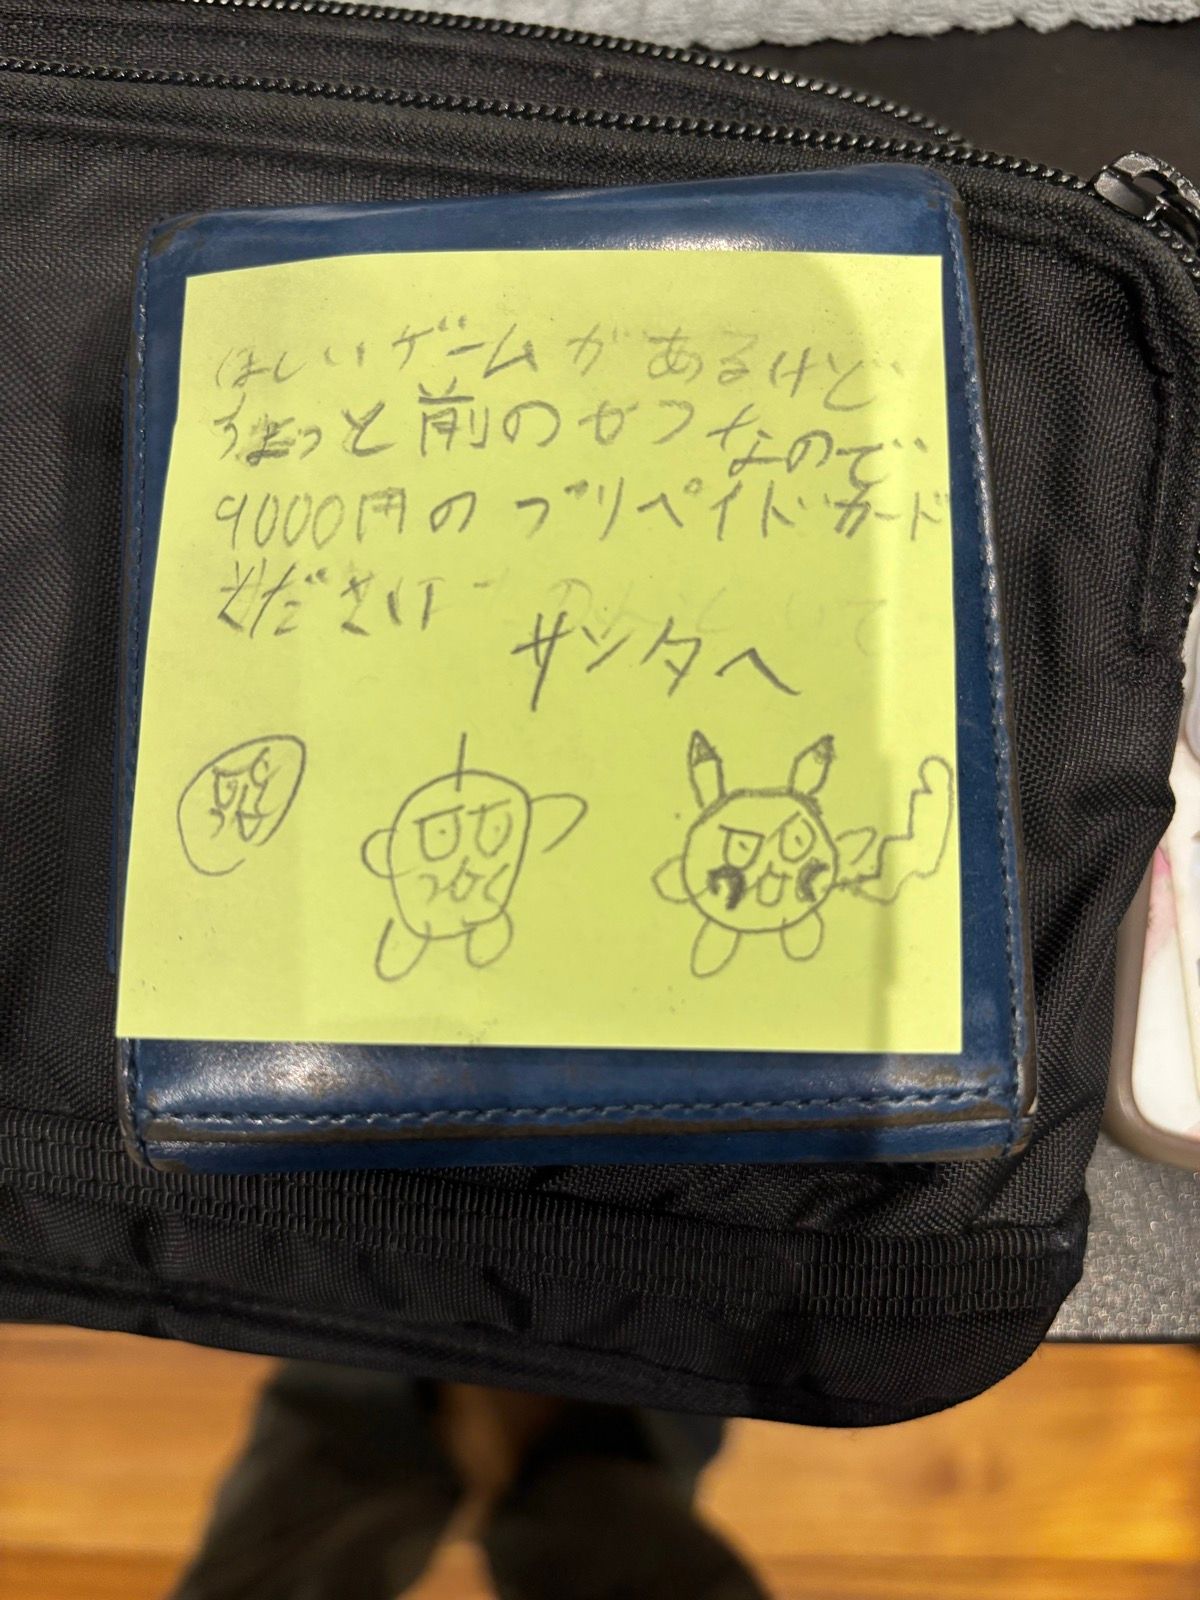 ほしいゲームがあるけど、
ちょっと前のやつなので
9000円のプリペイドカード
ください
サンタへ